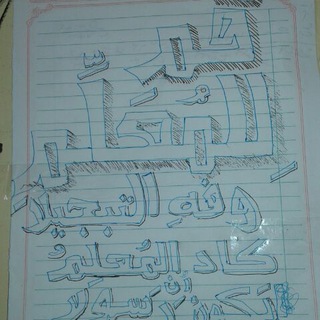 قم
للمُعَلِّم
وفهِ التبجيلا
كاد المُعلمُ
أن يكون رسولا